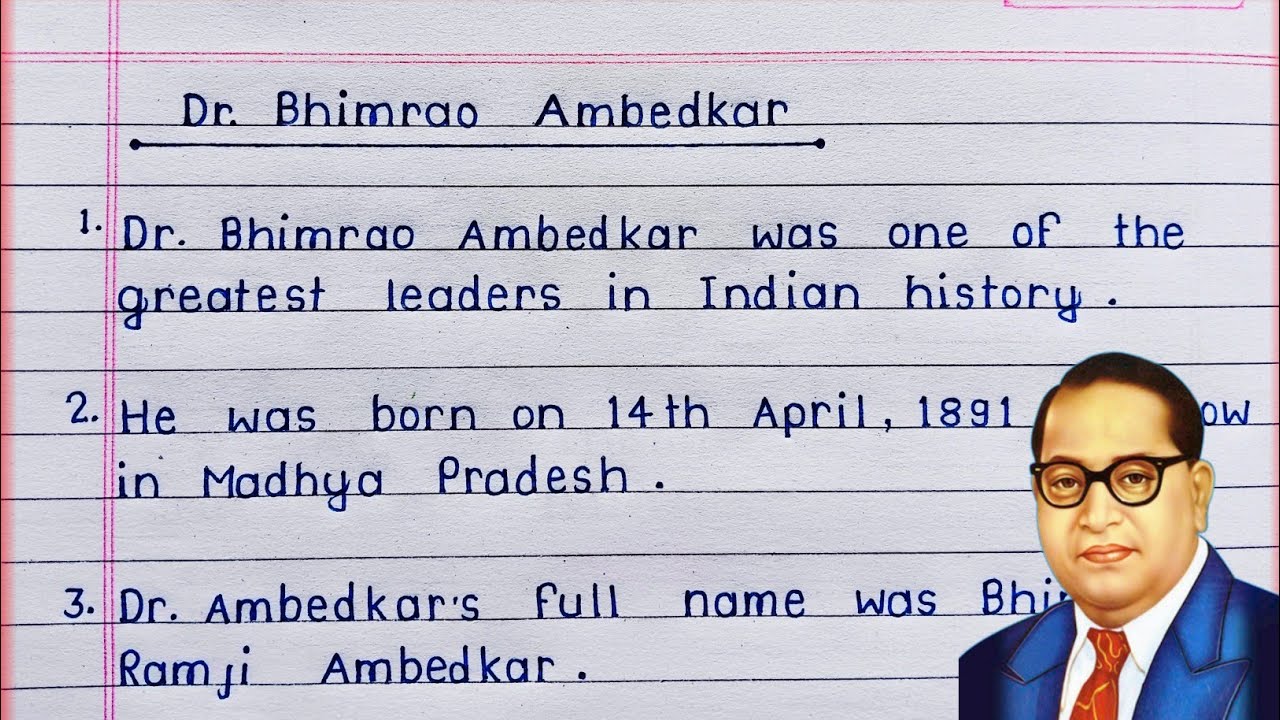 Dr. Bhimrao Ambedkar
1. Dr. Bhimrao Ambedkar was one of the
greatest leaders in Indian history.
2. He was born on 14th April, 1891
in Madhya Pradesh.
3. Dr. Ambedkar's full name was
Ramji Ambedkar.